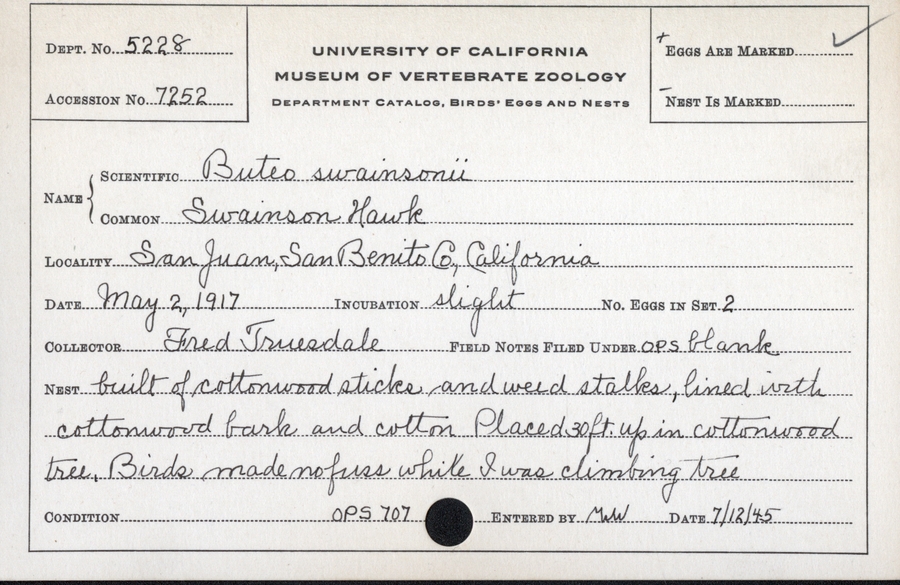 Dept. No. 5228
Accession No. 7252
UNIVERSITY OF CALIFORNIA
MUSEUM OF VERTEBRATE ZOOLOGY
Department Catalog, Birds' Eggs and Nests
+ Eggs Are Marked ✓
- Nest Is Marked
Name { Scientific Buteo swainsonii
Common Swainson Hawk
Locality San Juan, San Benito Co., California
Date May 2, 1917 Incubation slight No. Eggs in Set 2
Collector Fred Truesdale Field Notes Filed Under OPS blank
Nest built of cottonwood sticks and weed stalks, lined with
cottonwood bark and cotton Placed 30 ft. up in cottonwood
tree. Birds made no fuss while I was climbing tree
Condition OPS 707 Entered by MW Date 7/12/45